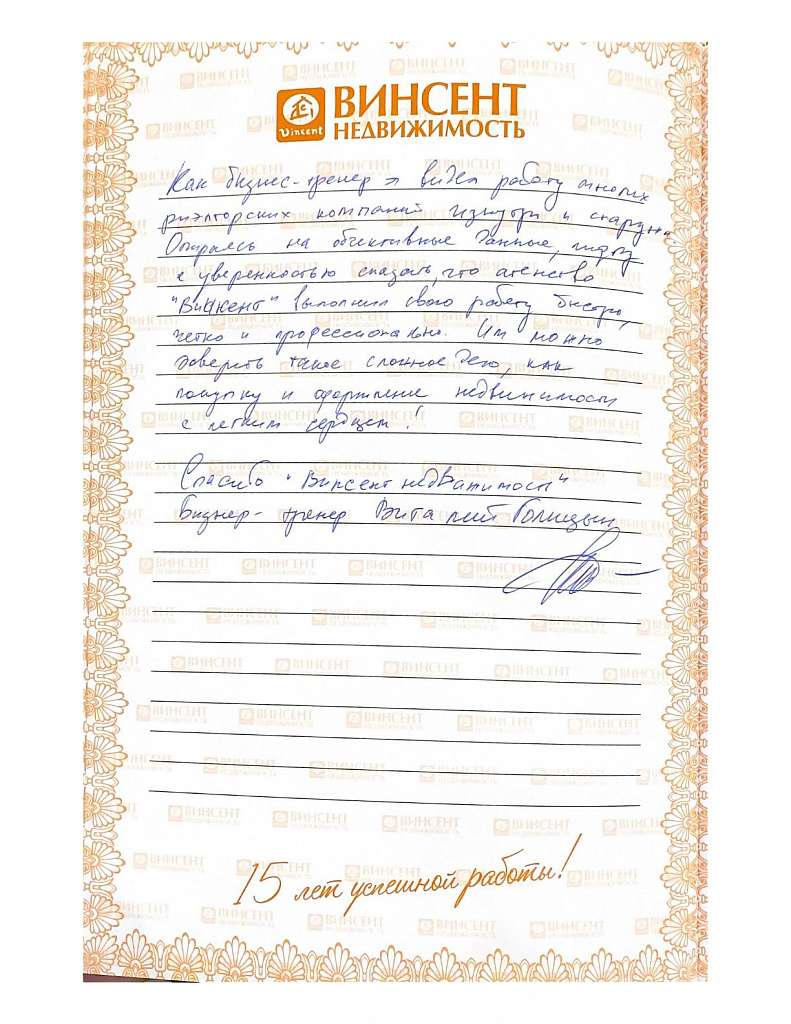 ВИНСЕНТ
НЕДВИЖИМОСТЬ
Vincent
Как бизнес-тренер я видел работу многих
риэлторских компаний изнутри и снаружи.
Опираясь на объективные данные, могу
с уверенностью сказать, что агенство
"Винсент" выполнил свою работу быстро,
четко и профессионально. Им можно
доверить такое сложное дело, как
покупку и оформление недвижимости
с легким сердцем!
Спасибо "Винсент недвижимость"
Бизнес-тренер Виталий Голицын
15 лет успешной работы!